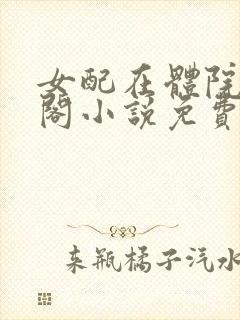 女配在體院
閣小說免費
来瓶橘子汽水